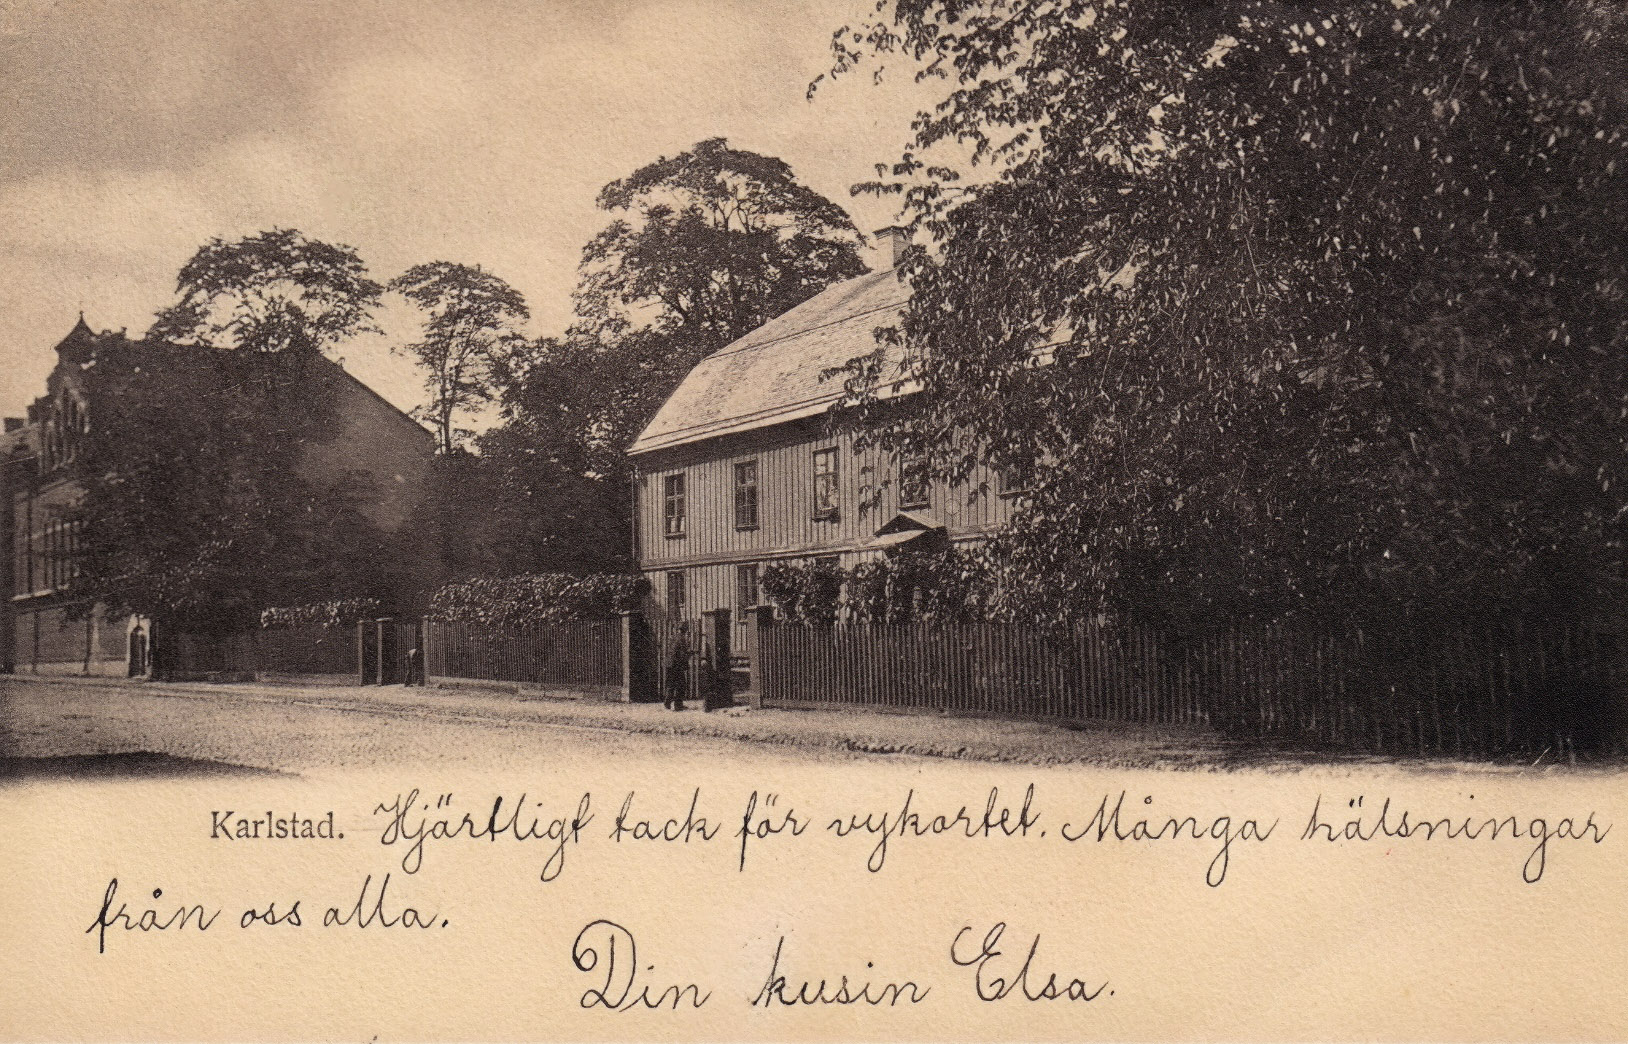 Karlstad. Hjärtligt tack för vykortet. Många hälsningar
från oss alla.
Din kusin Elsa.